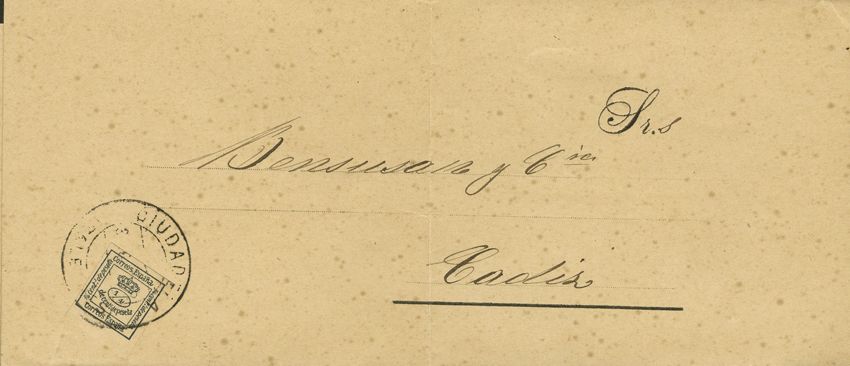 Sr.s
Bensusan y Cia
Cadiz
CIUDADELA
Correos. España
1/4
de cent. de peseta
Correos España